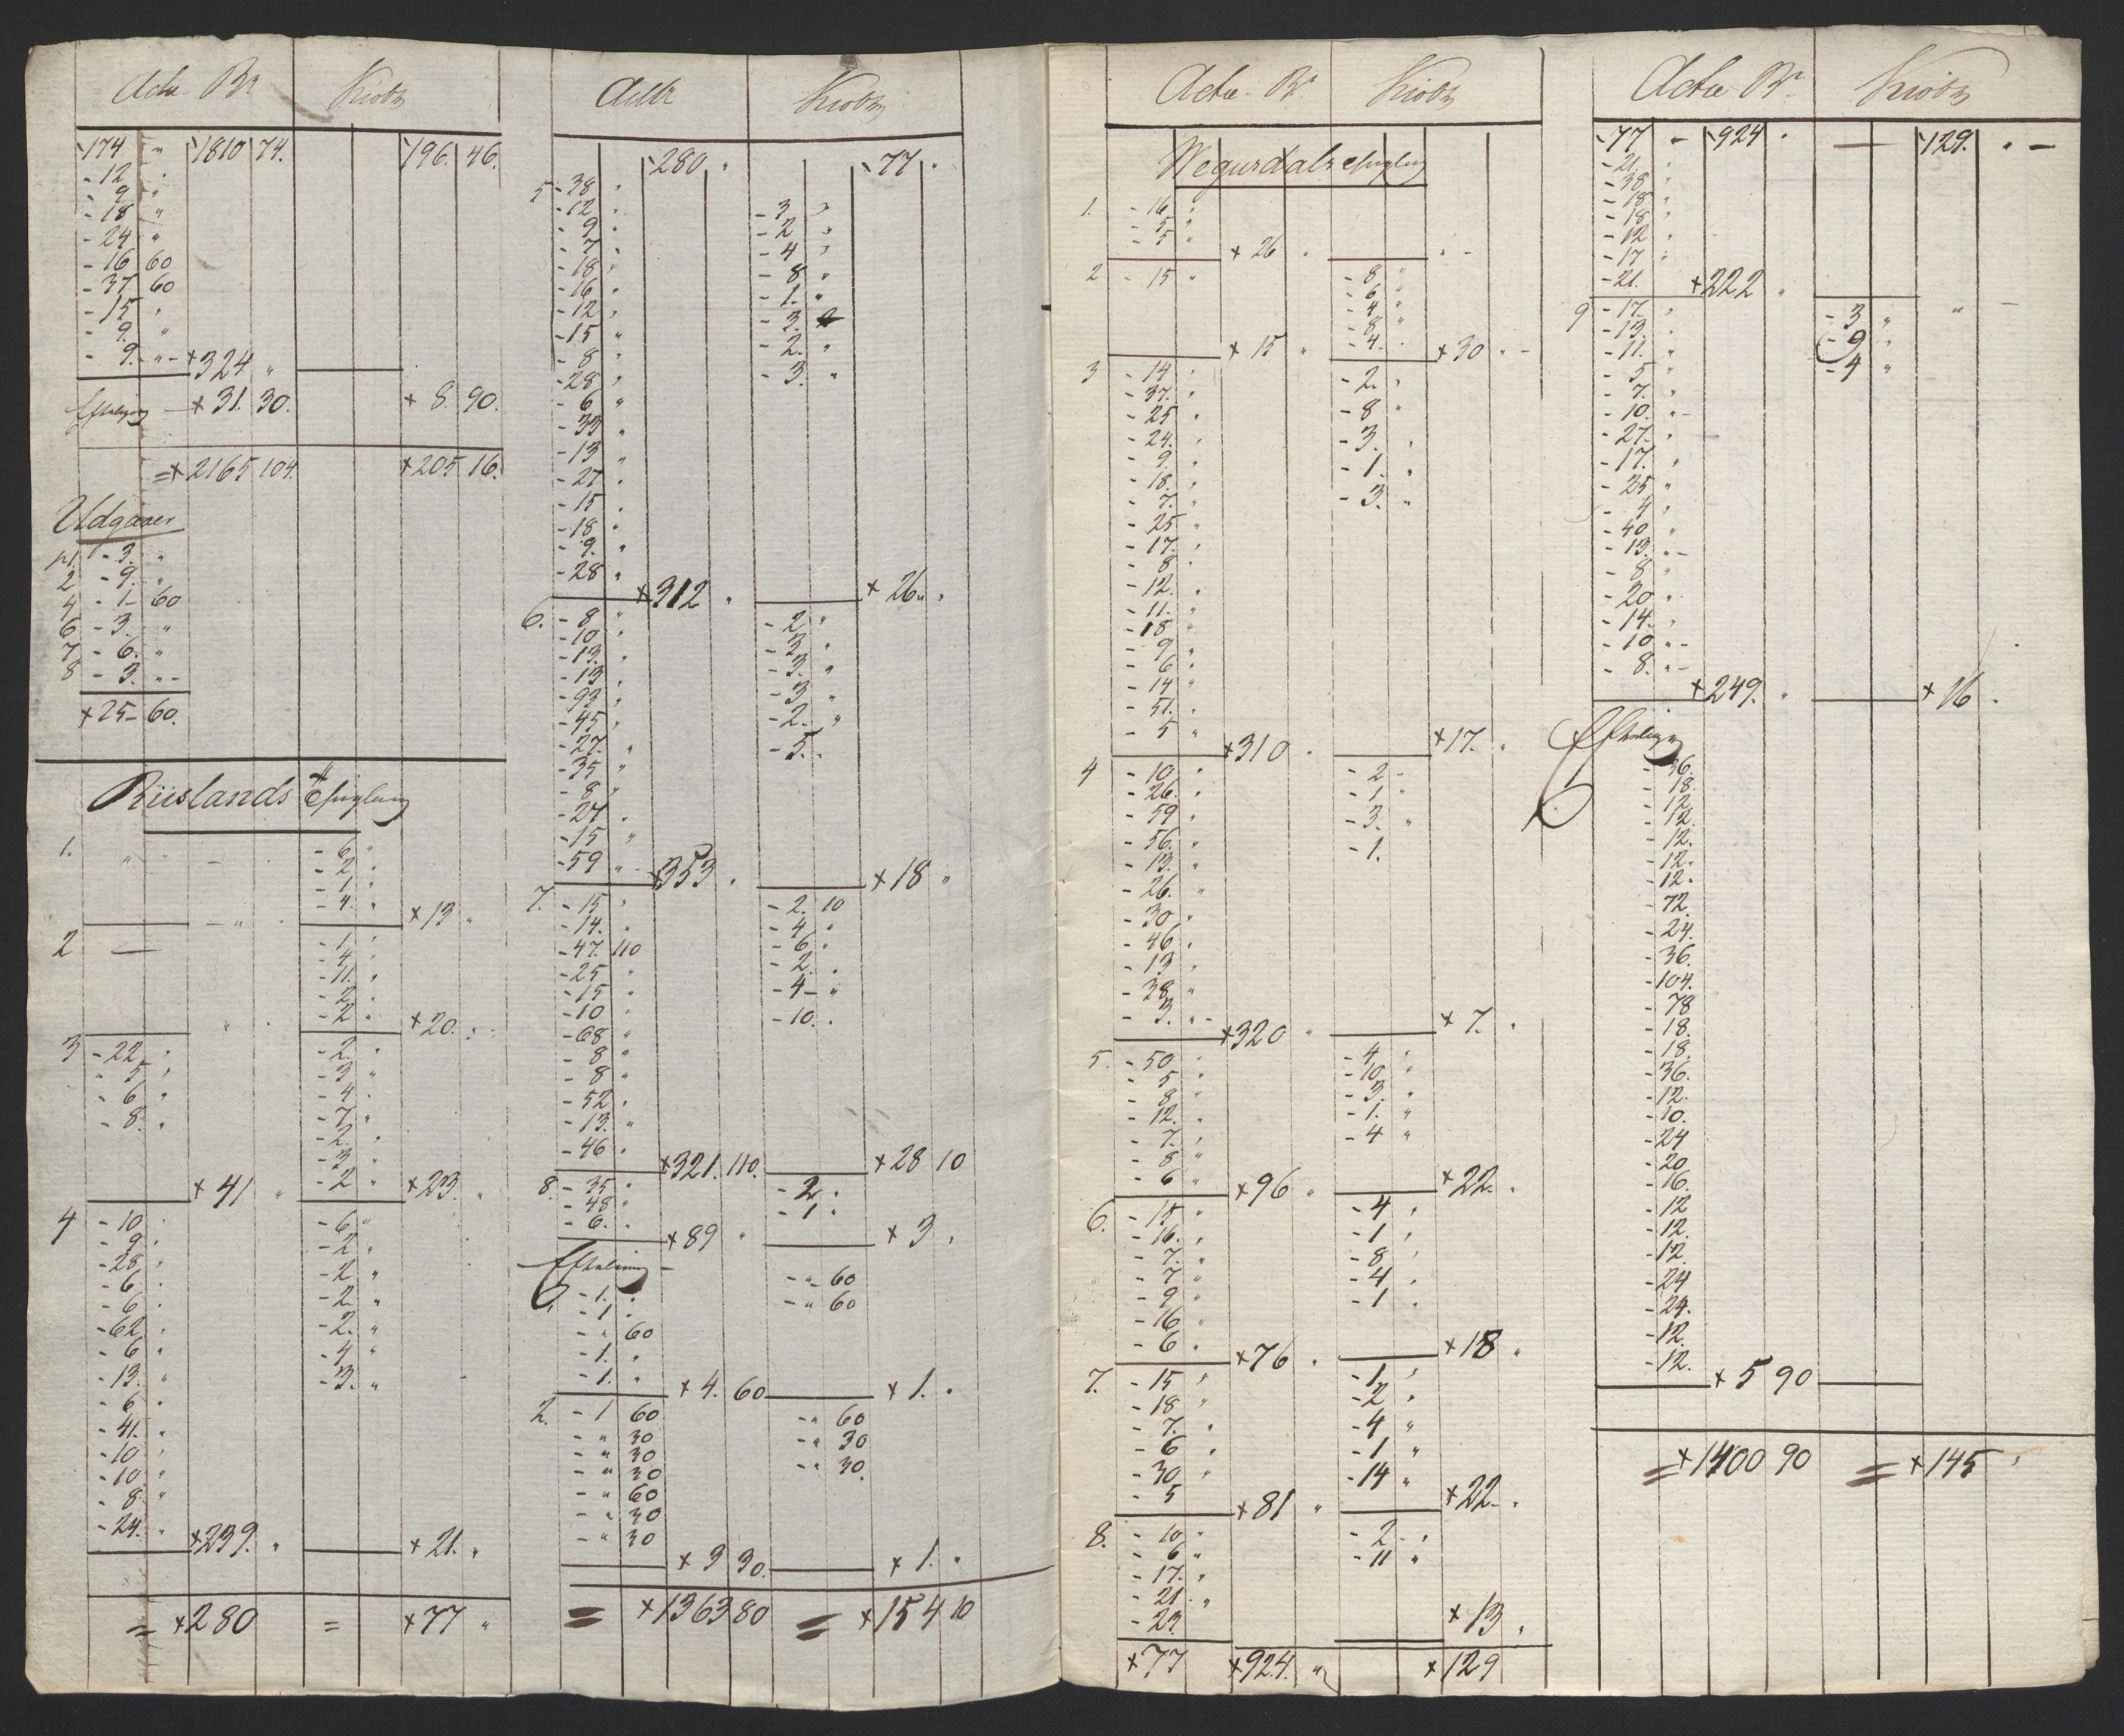 Acta Br
-174 " -1810 74. -196. 46.
-12 "
-9 "
-18 "
-24 "
-16 60
-37 60
-15 "
-9. "
-9. "- +324 "
+31. 30. +8. 90.
=+2165 104. +205 16.
Udgaver
-3. "
2 -9. "
4 -1- 60
6 -3. "
7 -6. "
8 -3. "-
+25- 60.
Riislands
1. " - -6 "
-2 "
-1 "
-4. " +13 "
2 — -1 "
-4 "
-11. "
-2 "
-2 " +20. "
3 -22 " -2 "
-5 " -3 "
-6 " -4 "
-8. " -7 "
-2. "
-3 "
+41 " -2 " +23. "
4 -10 " -6 "
-9 " -2 "
-28 " -2 "
-6 " -2 "
-6 " -2. "
-62 " -4 "
-6 " -3. "
-13. "
-6 "
-41. "
-10 "
-10 "
-8 "
-24. " +239. " +21. "
=+280 = +77 "
-280 " -77 "
5 -38 "
-12 " -3 "
-9 " -2 "
-7 " -4 "
-18 " -8 "
-16 " -1. "
-12 " -3.
-15 " -2. "
-8 " -3. "
-28 "
-6 "
-33 "
-13 "
-27 "
-15 "
-18 "
-9. "
-28 " +312 " +26 "
6. -8 " -2 "
-10 " -3 "
-13. " -3. "
-13 " -3 "
-93 " -2. "
-45 " -5. "
-27. "
-35 "
-8 "
-27 "
-15 "
-59 " +353 " +18 "
7. -15 " -2. 10
-14. " -4 "
-47. 110 -6 "
-25 " -2 "
-15 " -4- "
-10 " -10. "
-68 "
-8 "
-8 "
-52 "
-13. "
-46 " +321. 110. +28 10
8. -35 " -2 "
-48 " -1 "
-6. " +89 " +3 "
-" 60
-1. " -" 60
-1 "
-" 60
-1. "
-1. " +4. 60 +1. "
2. -1 60 -" 60
-" 30 -" 30
-" 30 -" 30
-" 30
-" 60
-" 30
-" 30 +3 30. +1. "
= +1363 80 = +154 10
Acta Br
1. -16 "
-5 "
-5 " +26 " " -
2 -15 " -8 "
-6 "
-4 "
-8 "
+15 " -4. " +30 " -
3 -14 " -2. "
-37. " -8 "
-25 " -3. "
-24. " -1. "
-9. " -3. "
-18. "
-7. "
-25 "
-17. "
-8 "
-12. "
-11. "
-18 "
-9 "
-6 "
-14 "
-51. "
-5 " +310 " +17. "
4 -10 " -2 "
-26. " -1 "
-59 " -3. "
-56. " -1.
-13. "
-26. "
-30 "
-46. "
-13 "
-38 "
-3. "- +320 " +7. "
5. -50 " -4 "
-5 " -10 "
-8 " -3. "
-12. " -1. "
-7. " -4 "
-8 "
-6 " +96 " +22. "
6. -15 " -4 "
-16. " -1 "
-7. " -8 "
-7 " -4 "
-9 " -1 "
-16 "
-6 " +76 " +18 "
7. -15 " -1 "
-18 " -2 "
-7. " -4 "
-6 " -1 "
-30 " -14 "
-5 +81 " +22. "
8. -10 " -2 "
-6 " -11 "
-17. "
-21. "
-23. +13 "
+77 +924. " +129
Acta Br
-77 - -924 " — -129. " -
-21. "
-38 "
-18 "
-18. "
-12 "
-17 "
-21. +222 "
9 -17. " -3 " " -
-13. " -9 "
-11. " -4 "
-5 "
-7. "
-10. "-
-27. "
-17. "
-25 "
-4 "
-40 "
-13. "-
-8 "
-20 "
-14. "
-10 "-
-8. "- +249. " +16 "
-36.
-18.
-12.
-12.
-12.
-12.
-12.
-72.
-24.
-36.
-104.
-78
-18.
-18.
-36.
-12.
-10.
-24
-20
-16.
-12
-12.
-12.
-24
-24.
-12.
-12. +5 90
=+1400 90 = +145 "